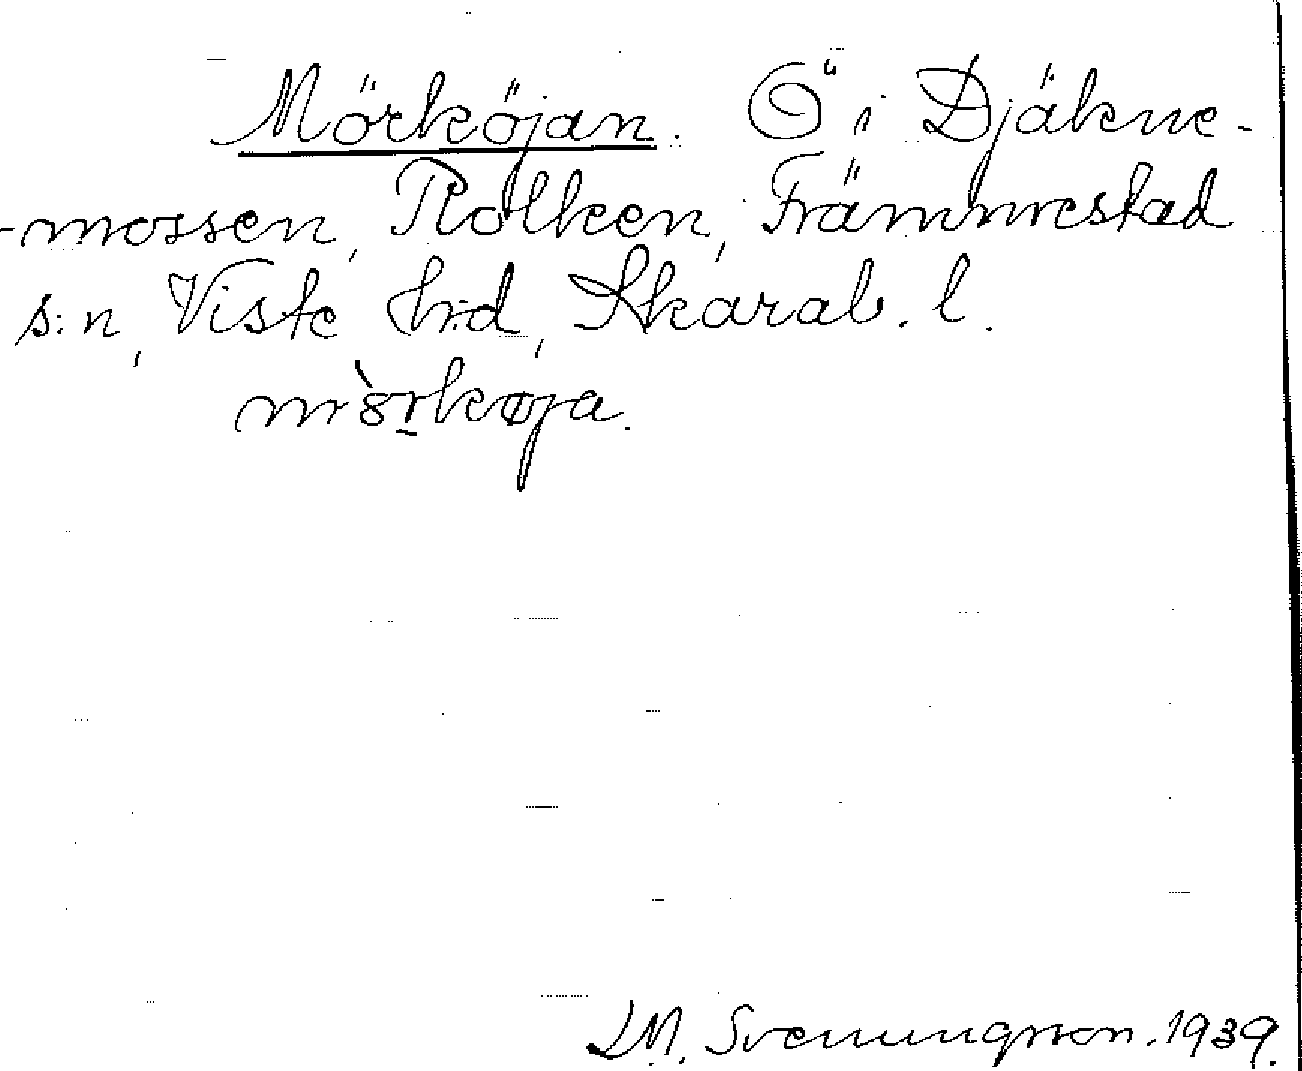 Mörköjan. Ö i Djäkne-
-mossen, Rolken, Främmestad
s:n, Viste h:d, Skarab. l.
mörkøja.
LM. Svenungsson. 1939.